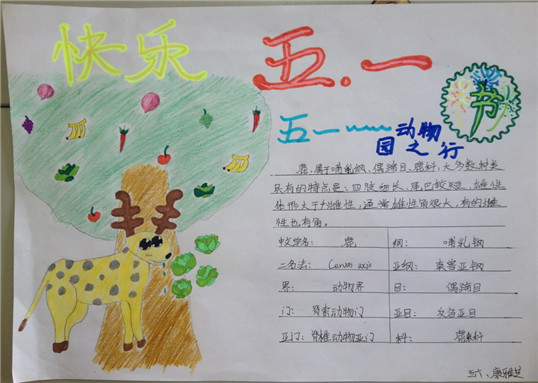 快乐 五.一
节
五一——动物
园之行
鹿,属于哺乳纲、偶蹄目、鹿科,大多数种类
具有的特点是:四肢细长,尾巴较短,雄性
体形大于雌性,通常雄性有角,有的雌
性也有角。
中文学名: 鹿 纲: 哺乳纲
二名法: Cervus axis 亚纲: 真兽亚纲
界: 动物界 目: 偶蹄目
门: 脊索动物门 亚目: 反刍亚目
亚门: 脊椎动物亚门 科: 鹿科